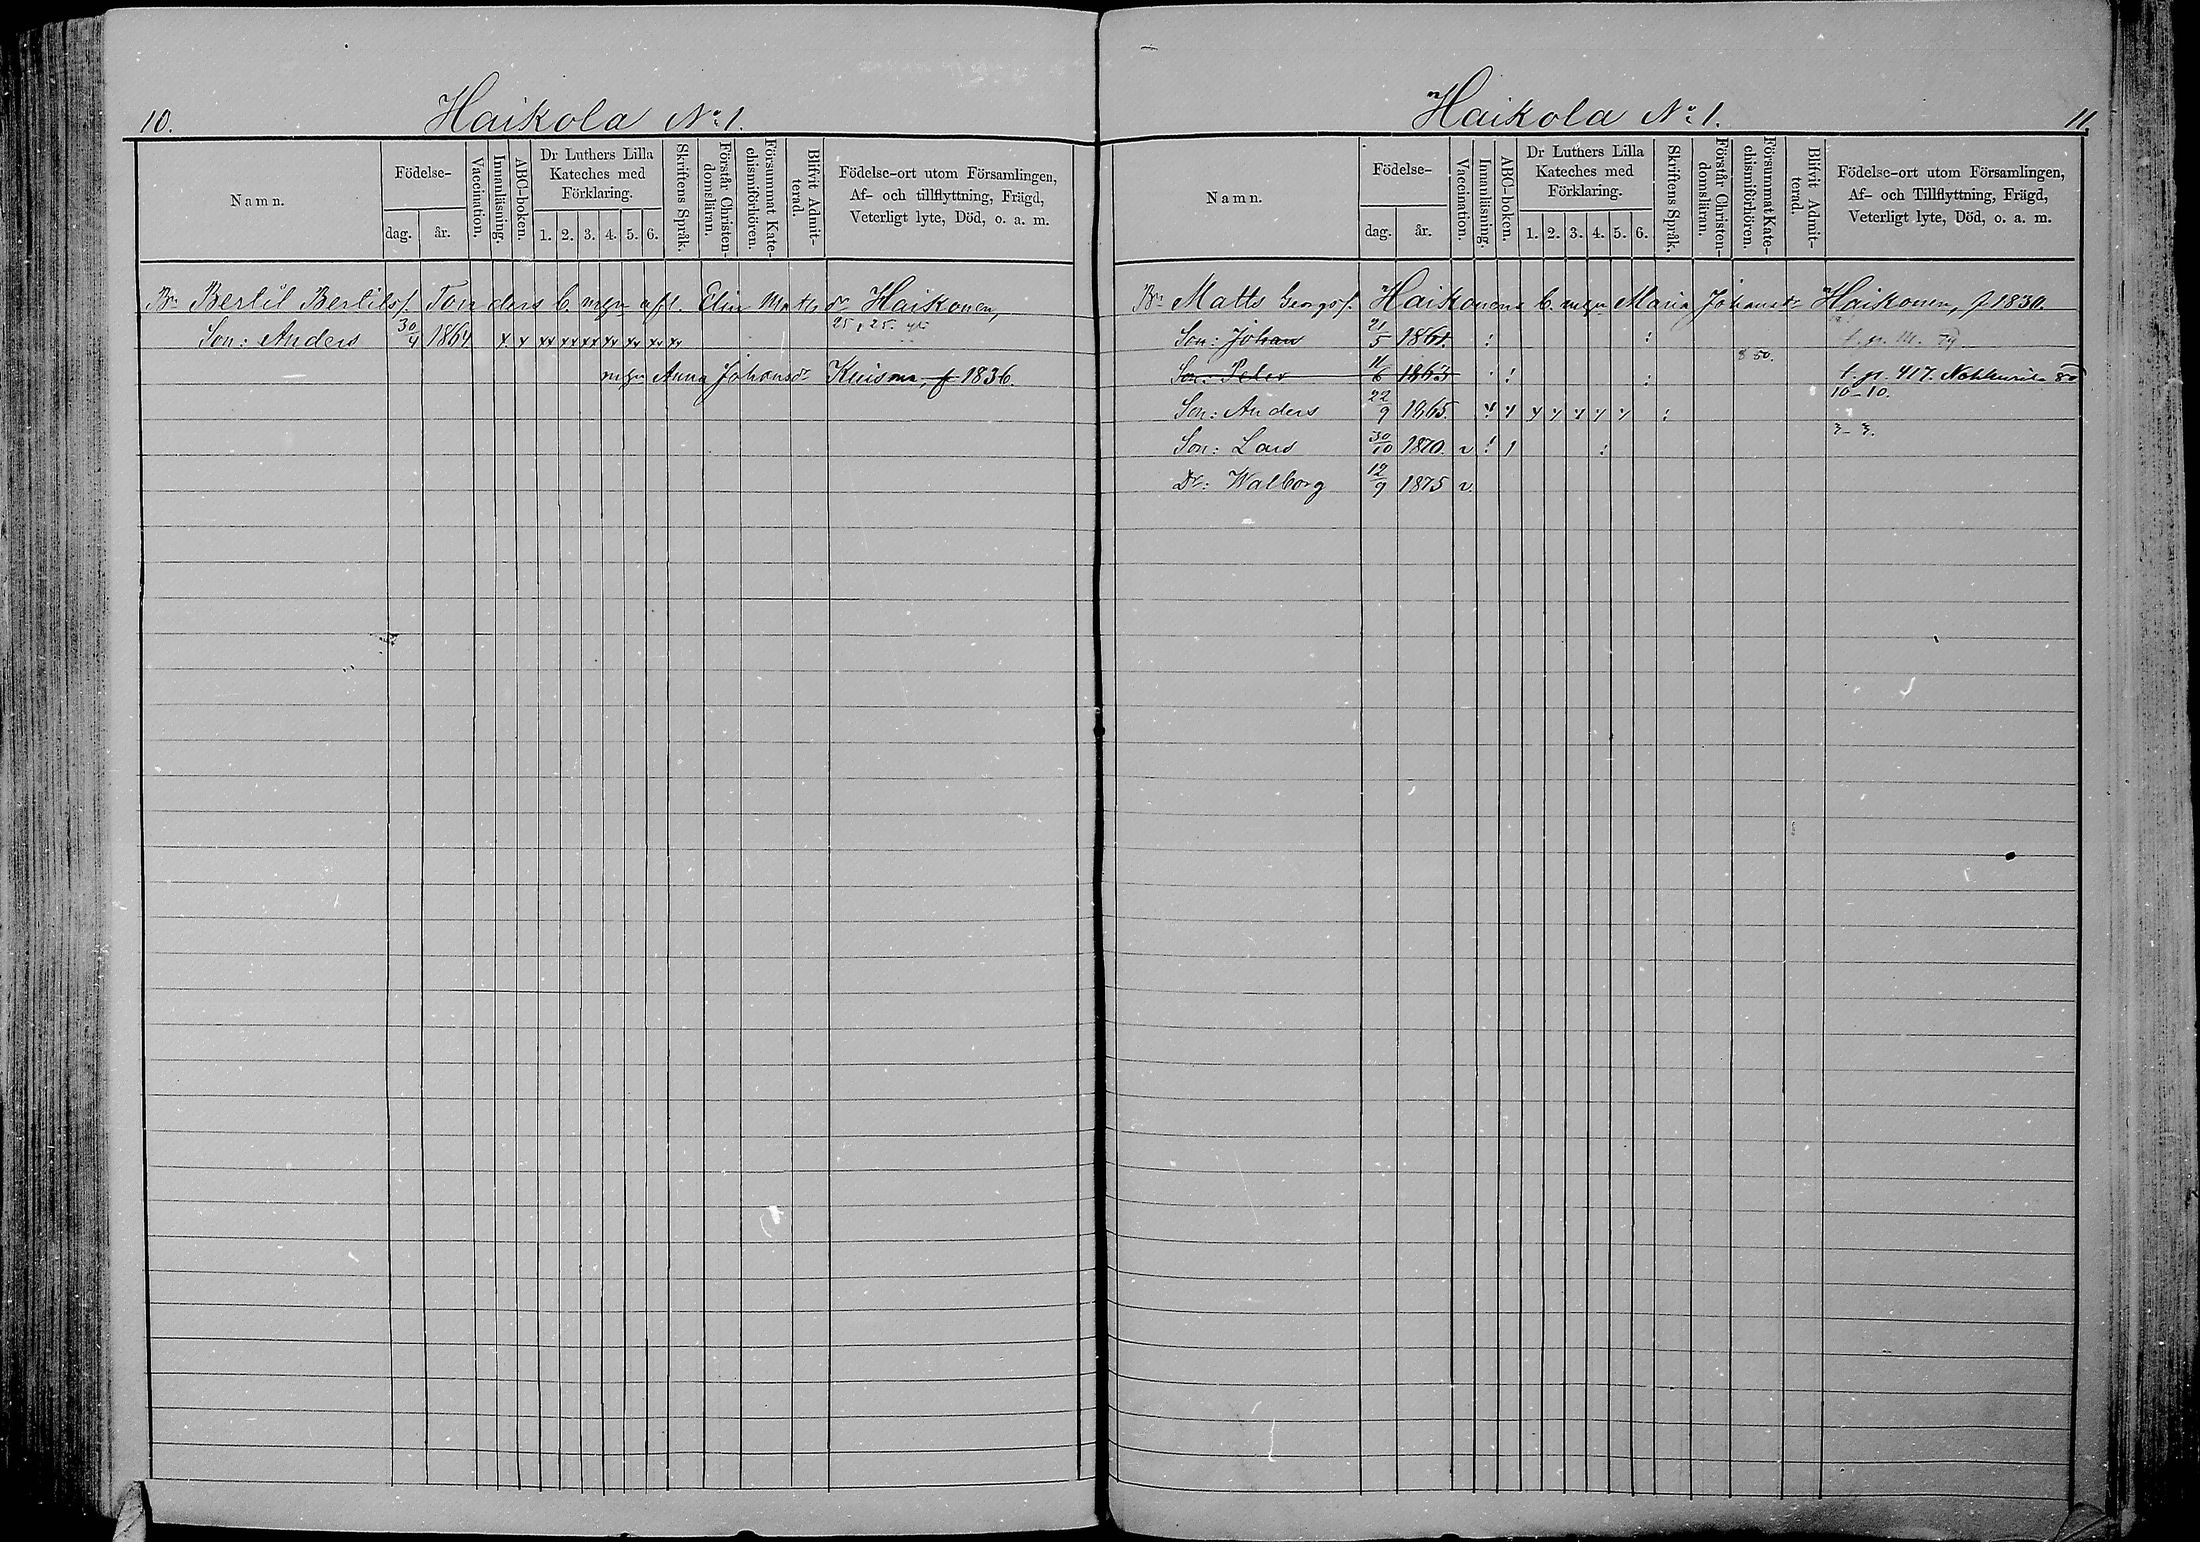 10.
Haikola No 1.
Namn.
Födelse-
dag.
år.
Vaccination.
Innanläsning.
ABC-boken.
Dr Luthers Lilla
Kateches med
Förklaring.
1. 2. 3. 4. 5. 6.
Skriftens Språk.
Förstår Christen-
domsläran.
Försummat Kate-
chismiförhören.
Blifvit Admit-
terad.
Födelse-ort utom Församlingen,
Af- och tillflyttning, Frägd,
Veterligt lyte, Död, o. a. m.
Bn Bertil Bertilsf. Tonders b. m. hu afl. Elin Matts dr Haikonen,
25 25
Son: Anders 30/4 1864 x x xx xx xx xx xx xx xx
m. hu Anna Johansdr Kuisma, f 1836.
Haikola No 1.
11.
Namn.
Födelse-
dag.
år.
Vaccination.
Innanläsning.
ABC-boken.
Dr Luthers Lilla
Kateches med
Förklaring.
1. 2. 3. 4. 5. 6.
Skriftens Språk.
Förstår Christen-
domsläran.
Försummat Kate-
chismiförhören.
Blifvit Admit-
terad.
Födelse-ort utom Församlingen,
Af- och Tillflyttning, Frägd,
Veterligt lyte, Död, o. a. m.
Bn Matts Georgsf. Haikonens b. m. hu Maria Johansdr Haikonen, f 1830.
Son: Johan 21/5 1861.
8 80.
Son: Peter 11/6 1863 417. 80
10-10.
Son: Anders 22/9 1865.
3-3.
Son: Lars 30/10 1870. v
Dr: Walborg 12/9 1875 v.